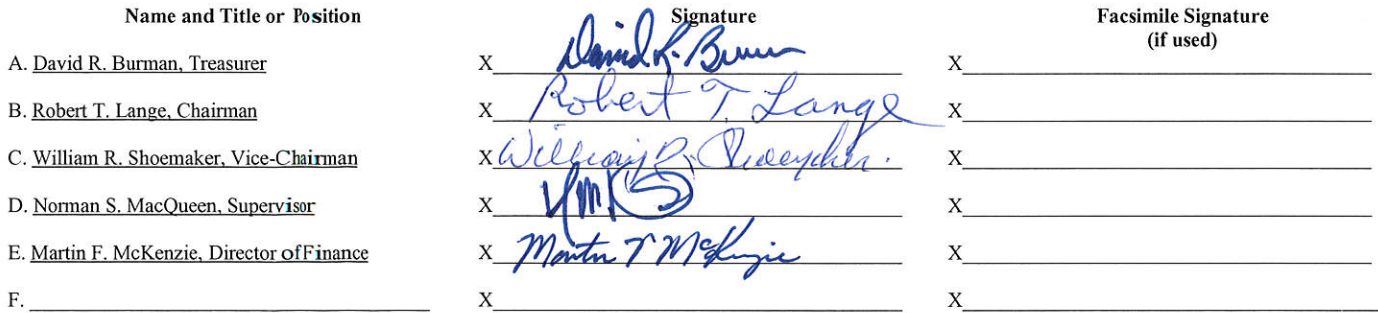 Name and Title or Position Signature Facsimile Signature
(if used)
A. David R. Burman, Treasurer X David R. Burman X
B. Robert T. Lange, Chairman X Robert T. Lange X
C. William R. Shoemaker, Vice-Chairman X William R. Shoemaker. X
D. Norman S. MacQueen, Supervisor X X
E. Martin F. McKenzie, Director of Finance X Martin F McKenzie X
F. X X